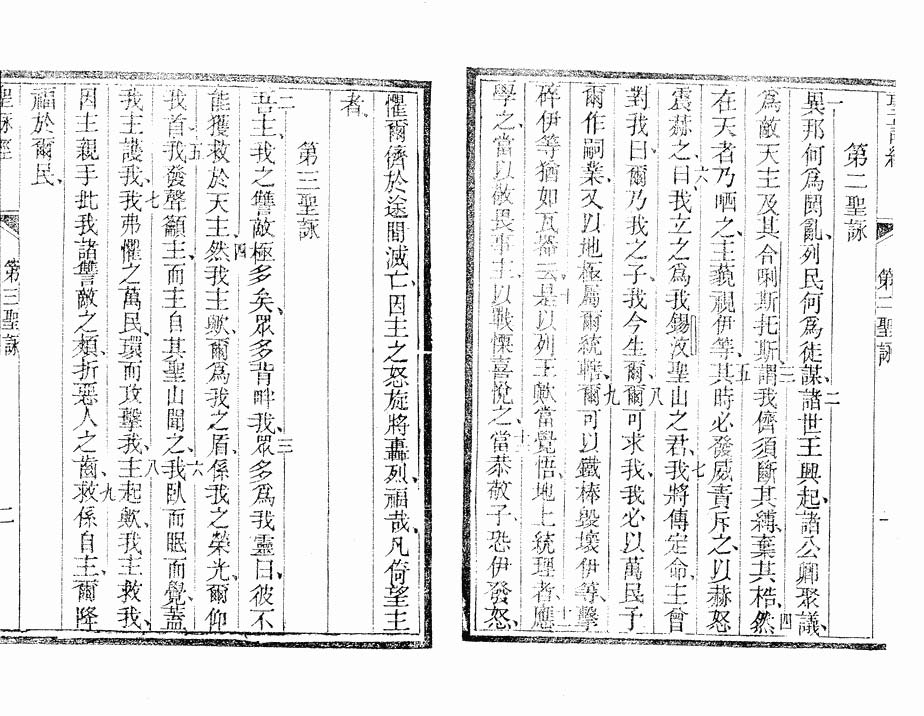 聖詠經
第二聖詠
一
第二聖詠
一異邦何爲鬨亂、列民何爲徒謀、二諸世王興起、諸公卿聚議、
爲敵天主及其合唎斯托斯、三謂我儕須斷其縛、棄其梏、四然
在天者乃哂之、主藐視伊等、五其時必發威責斥之、以赫怒
震赫之、六曰我立之爲我錫汝聖山之君、七我將傳定命、主曾
對我曰、爾乃我之子、我今生爾、八爾可求我、我必以萬民予
爾作嗣業、又以地極屬爾統轄、九爾可以鐵棒毀壞伊等、擊
碎伊等猶如瓦器云、十是以列王歟當覺悟、地上統理者應
學之、十一當以敬畏事主、以戰慄喜悅之、十二當恭敬子、恐伊發怒、
懼爾儕於途間滅亡、因主之怒旋將轟烈、福哉、凡倚望主
者、
第三聖詠
二吾主、我之讐敵極多矣、眾多背畔我、三眾多爲我靈曰、彼不
能獲救於天主、四然我主歟、爾爲我之盾、係我之榮光、爾仰
我首、五我發聲籲主、而主自其聖山聞之、六我臥而眠而覺、蓋
我主護我、七我弗懼之萬民、環而攻擊我、八主起歟、我主救我、
因主親手批我諸讐敵之頰、折惡人之齒、九救係自主、爾降
福於爾民、
聖詠經
第三聖詠
二